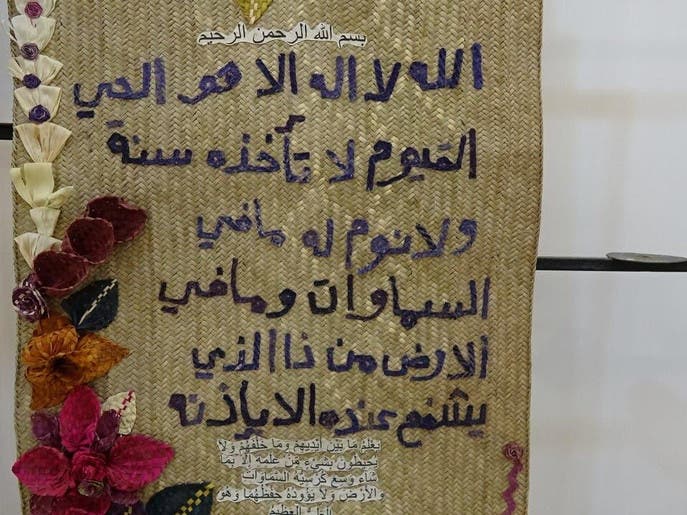 بسم الله الرحمن الرحيم
الله لا اله الا هو الحي
القيوم لا تأخذه سنة
ولا نوم له ما في
السماوات وما في
الارض من ذا الذي
يشفع عنده الا باذنه
يعلم ما بين أيديهم وما خلفهم ولا
يحيطون بشيء من علمه إلا بما
شاء وسع كرسيه السماوات
والأرض ولا يؤوده حفظهما وهو
العلي العظيم